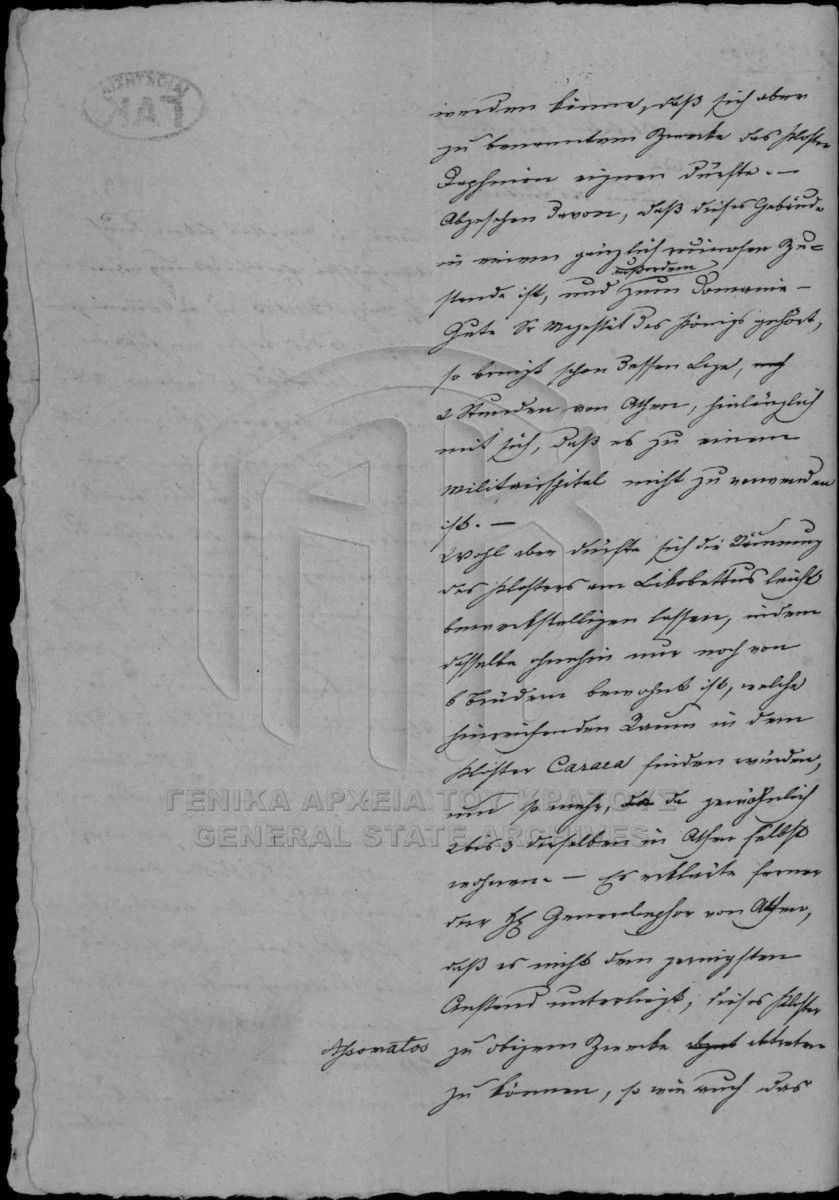 werden könne, daß sich aber
zu benanntem Zwecke das Kloster
Daphnion eignen dürfte. —
Abgesehen davon, daß dieses Gebäude
in einem gänzlich ruinosen Zu=
außerdem
stande ist, und zum Domanie-
Gute Sr Majestät des Königs gehört,
so bringt schon dessen Lage,
2 Stunden von Athen, hinlänglich
mit sich, daß es zu einem
Militairspital nicht zu verwenden
ist. —
Wohl aber dürfte sich die Räumung
des Klosters am Likobettus leicht
bewerkstelligen lassen, indem
dasselbe ohnehin nur noch von
6 Brüdern bewohnt ist, welche
hinreichenden Raum in dem
Kloster Caraea finden würden,
um so mehr, da gewöhnlich
2 bis 3 derselben in Athen selbst
wohnen. — Es erklärte ferner
der H. Generalephor von Athen,
daß es nicht dem geringsten
Anstand unterliegt, dieses Kloster
Asomatos zu obigem Zwecke abtreten
zu können, so wie auch das
ΓΑΚ
ΓΕΝΙΚΑ ΑΡΧΕΙΑ ΤΟΥ ΚΡΑΤΟΥΣ
GENERAL STATE ARCHIVES